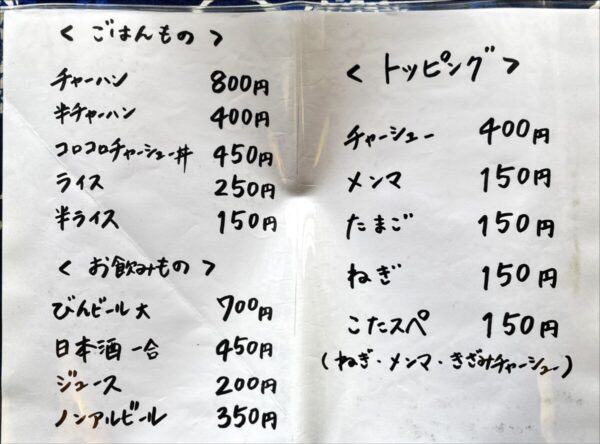 < ごはんもの >
チャーハン 800円
半チャーハン 400円
コロコロチャーシュー丼 450円
ライス 250円
半ライス 150円
< お飲みもの >
びんビール大 700円
日本酒 一合 450円
ジュース 200円
ノンアルビール 350円
< トッピング >
チャーシュー 400円
メンマ 150円
たまご 150円
ねぎ 150円
こたスペ 150円
(ねぎ・メンマ・きざみチャーシュー)